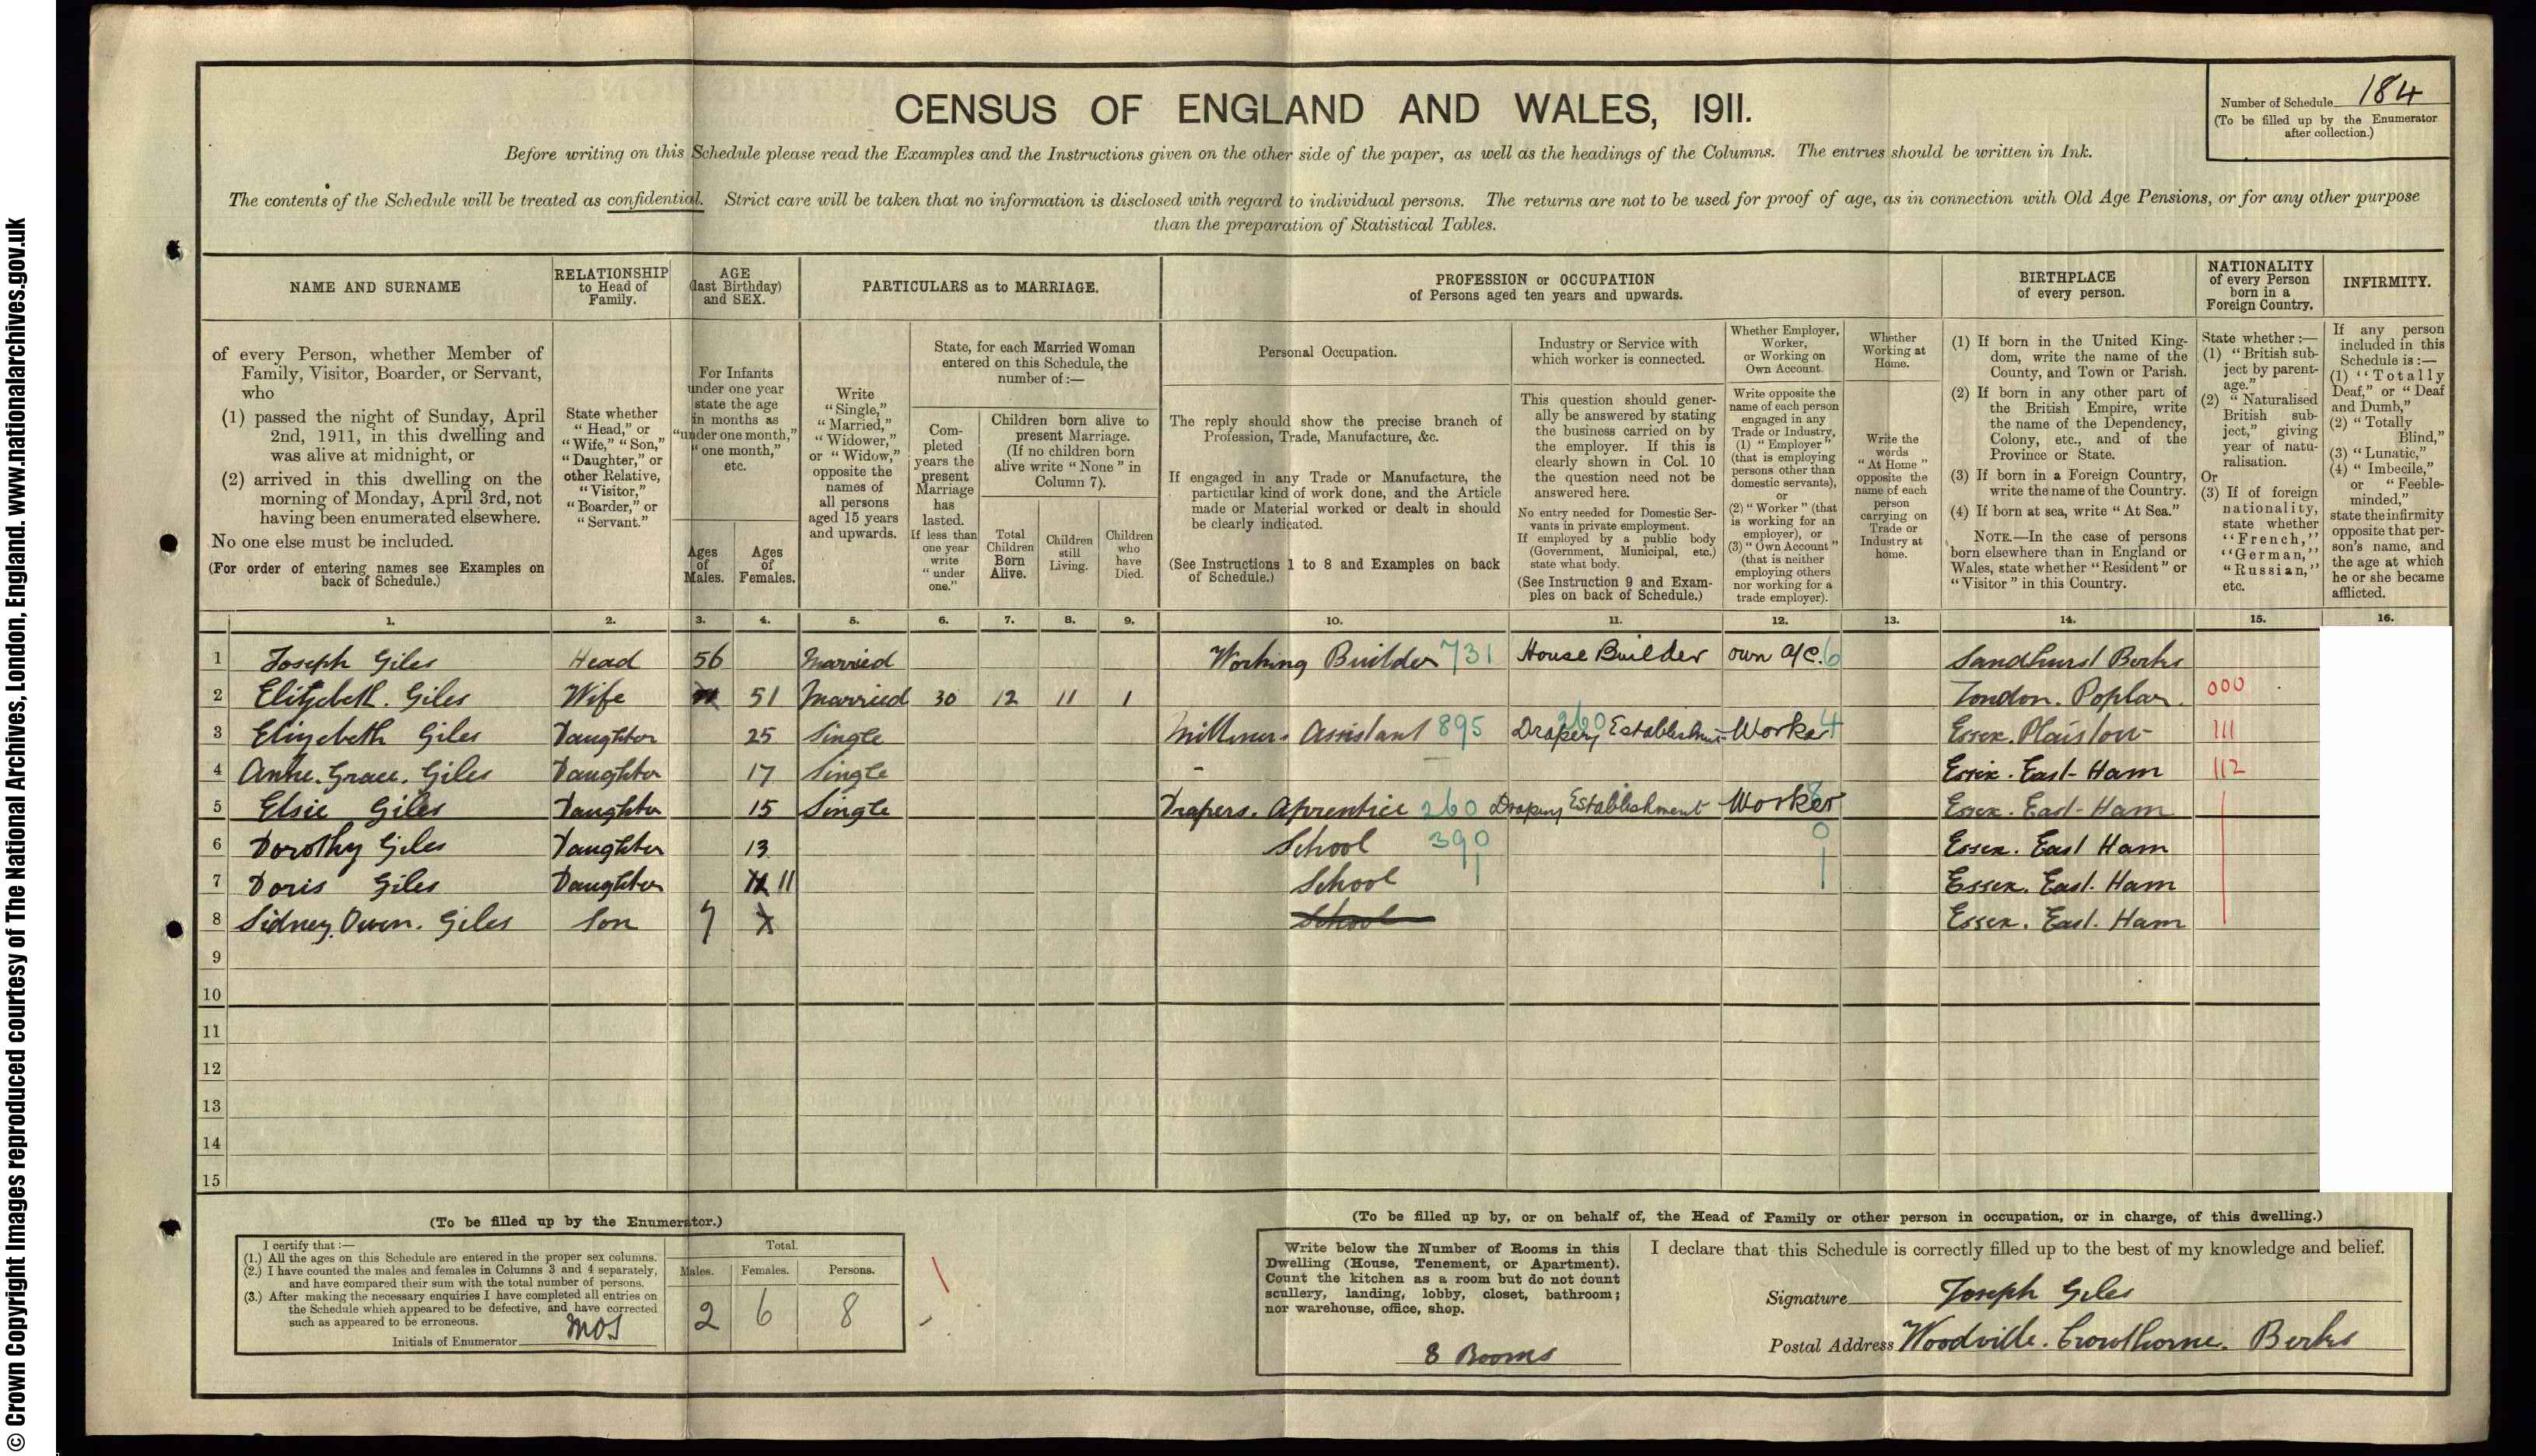 © Crown Copyright Images reproduced courtesy of The National Archives, London, England. www.nationalarchives.gov.uk
CENSUS OF ENGLAND AND WALES, 1911.
Number of Schedule 184
(To be filled up by the Enumerator after collection.)
Before writing on this Schedule please read the Examples and the Instructions given on the other side of the paper, as well as the headings of the Columns. The entries should be written in Ink.
The contents of the Schedule will be treated as confidential. Strict care will be taken that no information is disclosed with regard to individual persons. The returns are not to be used for proof of age, as in connection with Old Age Pensions, or for any other purpose
than the preparation of Statistical Tables.
NAME AND SURNAME
of every Person, whether Member of
Family, Visitor, Boarder, or Servant,
who
(1) passed the night of Sunday, April
2nd, 1911, in this dwelling and
was alive at midnight, or
(2) arrived in this dwelling on the
morning of Monday, April 3rd, not
having been enumerated elsewhere.
No one else must be included.
(For order of entering names see Examples on
back of Schedule.)
RELATIONSHIP
to Head of
Family.
State whether
"Head," or
"Wife," "Son,"
"Daughter," or
other Relative,
"Visitor,"
"Boarder," or
"Servant."
AGE
(last Birthday)
and SEX.
For Infants
under one year
state the age
in months as
"under one month,"
"one month,"
etc.
Ages
of
Males.
Ages
of
Females.
PARTICULARS as to MARRIAGE.
Write
"Single,"
"Married,"
"Widower,"
or "Widow,"
opposite the
names of
all persons
aged 15 years
and upwards.
State, for each Married Woman
entered on this Schedule, the
number of:—
Com-
pleted
years the
present
Marriage
has
lasted.
If less than
one year
write
"under
one."
Children born alive to
present Marriage.
(If no children born
alive write "None" in
Column 7).
Total
Children
Born
Alive.
Children
still
Living.
Children
who
have
Died.
PROFESSION or OCCUPATION
of Persons aged ten years and upwards.
Personal Occupation.
The reply should show the precise branch of
Profession, Trade, Manufacture, &c.
If engaged in any Trade or Manufacture, the
particular kind of work done, and the Article
made or Material worked or dealt in should
be clearly indicated.
(See Instructions 1 to 8 and Examples on back
of Schedule.)
Industry or Service with
which worker is connected.
This question should gener-
ally be answered by stating
the business carried on by
the employer. If this is
clearly shown in Col. 10
the question need not be
answered here.
No entry needed for Domestic Ser-
vants in private employment.
If employed by a public body
(Government, Municipal, etc.)
state what body.
(See Instruction 9 and Exam-
ples on back of Schedule.)
Whether Employer,
Worker,
or Working on
Own Account.
Write opposite the
name of each person
engaged in any
Trade or Industry,
(1) "Employer"
(that is employing
persons other than
domestic servants),
or
(2) "Worker" (that
is working for an
employer), or
(3) "Own Account"
(that is neither
employing others
nor working for a
trade employer).
Whether
Working at
Home.
Write the
words
"At Home"
opposite the
name of each
person
carrying on
Trade or
Industry at
home.
BIRTHPLACE
of every person.
(1) If born in the United King-
dom, write the name of the
County, and Town or Parish.
(2) If born in any other part of
the British Empire, write
the name of the Dependency,
Colony, etc., and of the
Province or State.
(3) If born in a Foreign Country,
write the name of the Country.
(4) If born at sea, write "At Sea."
NOTE.—In the case of persons
born elsewhere than in England or
Wales, state whether "Resident" or
"Visitor" in this Country.
NATIONALITY
of every Person
born in a
Foreign Country.
State whether:—
(1) "British sub-
ject by parent-
age."
(2) "Naturalised
British sub-
ject," giving
year of natu-
ralisation.
Or
(3) If of foreign
nationality,
state whether
"French,"
"German,"
"Russian,"
etc.
INFIRMITY.
If any person
included in this
Schedule is:—
(1) "Totally
Deaf," or "Deaf
and Dumb,"
(2) "Totally
Blind,"
(3) "Lunatic,"
(4) "Imbecile,"
or "Feeble-
minded,"
state the infirmity
opposite that per-
son's name, and
the age at which
he or she became
afflicted.
1. 2. 3. 4. 5. 6. 7. 8. 9. 10. 11. 12. 13. 14. 15. 16.
1 Joseph Giles Head 56 Married Working Builder 731 House Builder own a/c. 6 Sandhurst Berks
2 Elizebeth. Giles Wife 51 Married 30 12 11 1 London. Poplar. 000
3 Elizebeth Giles Daughter 25 Single Milliners Assistant 895 Drapery Establishment 260 Worker 4 Essex. Plaistow 111
4 Anne. Grace. Giles Daughter 17 Single - Essex. East-Ham 112
5 Elsie Giles Daughter 15 Single Drapers. Aprentice 260 Drapery Establishment Worker 8 Essex. East-Ham
6 Dorothy Giles Daughter 13 School 390 0 Essex. East Ham
7 Doris Giles Daughter 11 School Essex. East. Ham
8 Sidney. Owen. Giles Son 7 School Essex. East. Ham
9
10
11
12
13
14
15
(To be filled up by the Enumerator.)
I certify that:—
(1.) All the ages on this Schedule are entered in the proper sex columns.
(2.) I have counted the males and females in Columns 3 and 4 separately,
and have compared their sum with the total number of persons.
(3.) After making the necessary enquiries I have completed all entries on
the Schedule which appeared to be defective, and have corrected
such as appeared to be erroneous.
Initials of Enumerator
Total.
Males. Females. Persons.
2 6 8
(To be filled up by, or on behalf of, the Head of Family or other person in occupation, or in charge, of this dwelling.)
Write below the Number of Rooms in this
Dwelling (House, Tenement, or Apartment).
Count the kitchen as a room but do not count
scullery, landing, lobby, closet, bathroom;
nor warehouse, office, shop.
8 Rooms
I declare that this Schedule is correctly filled up to the best of my knowledge and belief.
Signature Joseph Giles
Postal Address Woodville. Crowthorne. Berks